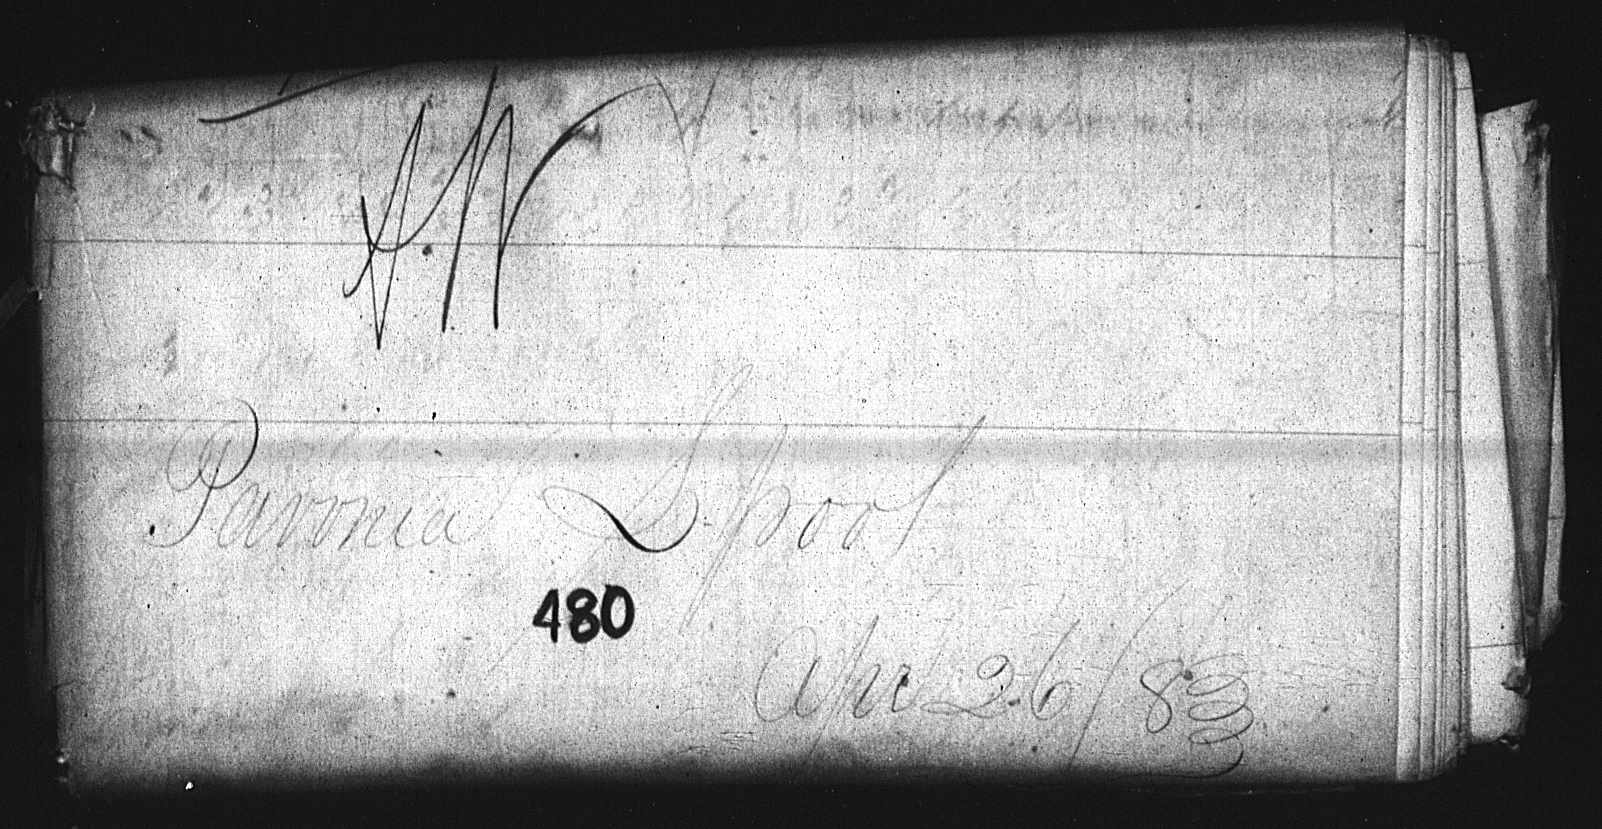 A.W
Pavonia L'pool
480
Apr 26/83